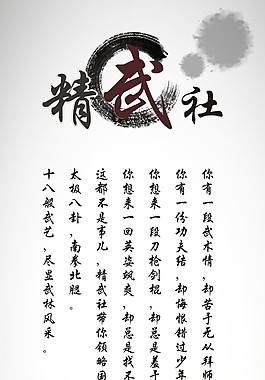 精武社
你有一段武术情，却苦于无从拜师
你有一份功夫结，却悔恨错过少年
你想来一段刀枪剑棍，却总是羞于
你想来一回英姿飒爽，却总是找不
这都不是事儿，精武社带你领略国
太极八卦，南拳北腿。
十八般武艺，尽显武林风采。